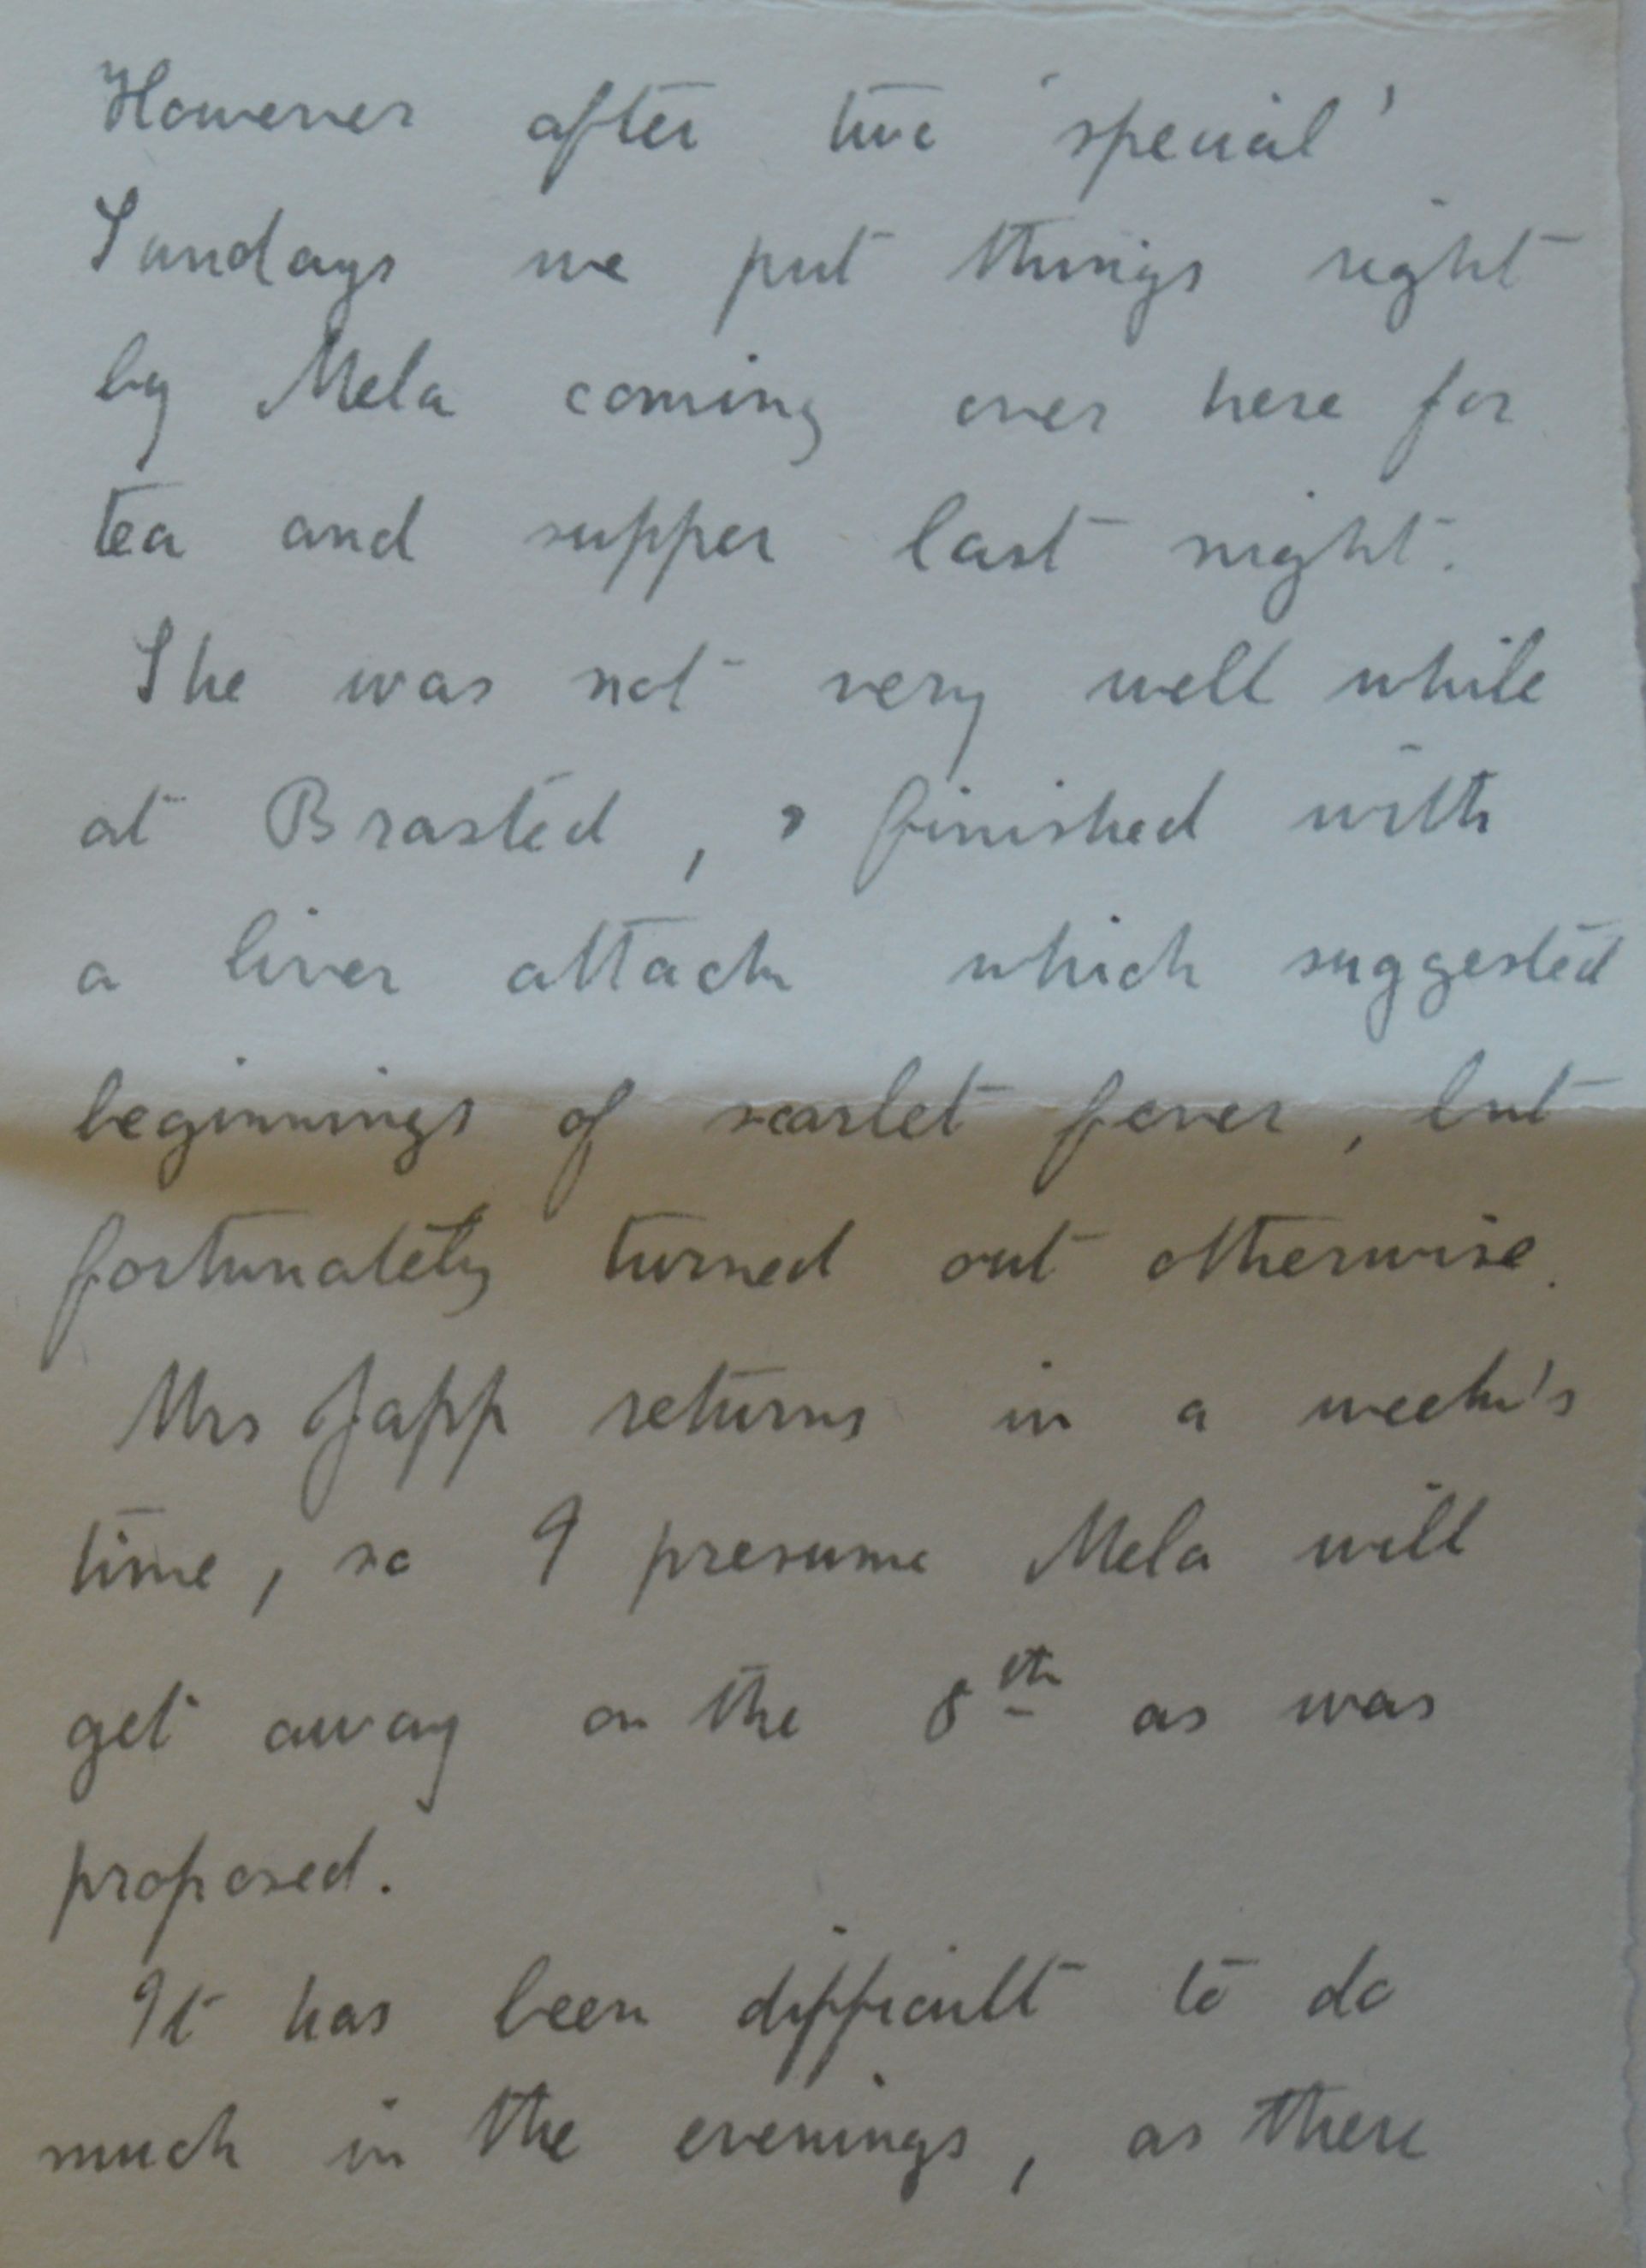 However after two 'special'
Sundays we put things right
by Mela coming over here for
tea and supper last night.
She was not very well while
at Brasted, & finished with
a liver attack which suggested
beginnings of scarlet fever, but
fortunately turned out otherwise.
Mrs Japp returns in a week's
time, so I presume Mela will
get away on the 8th as was
proposed.
It has been difficult to do
much in the evenings, as there